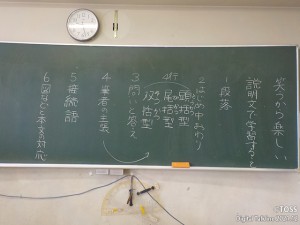 笑うから楽しい
説明文で学習すること
1 段落
2 はじめ・中・おわり
頭括型
尾括型
双括型
3 問いと答え
4 筆者の主張
5 接続語
6 図などと本文の対応
© TOSS